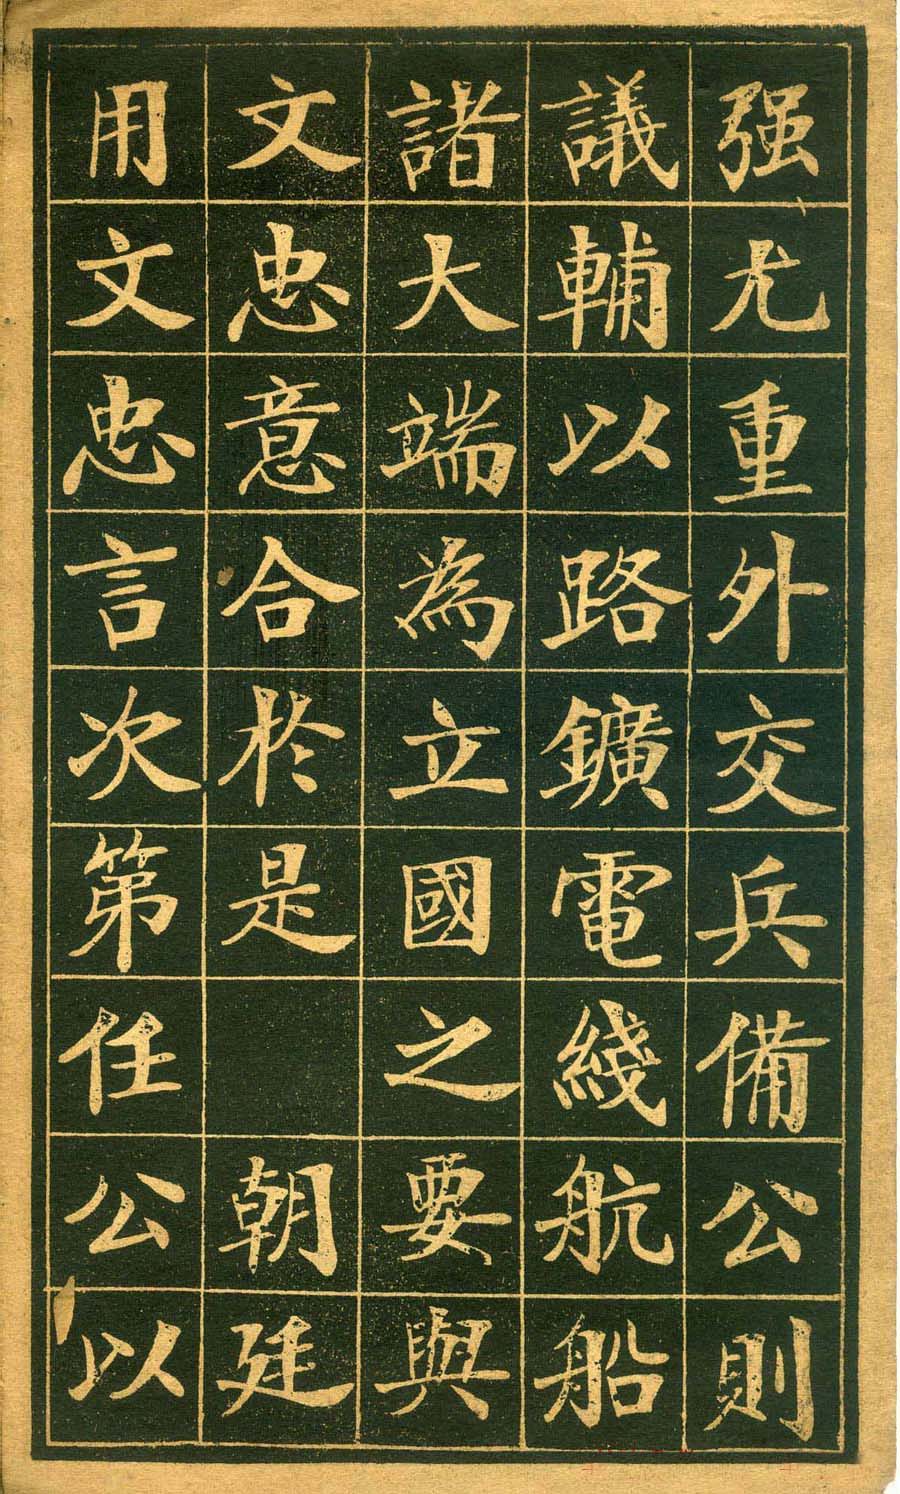 强尤重外交兵備公則
議輔以路鑛電綫航船
諸大端為立國之要與
文忠意合於是朝廷
用文忠言次第任公以